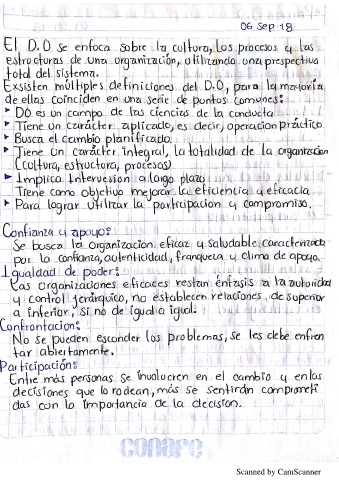 06 sep 18
El D.O se enfoca sobre la cultura, los procesos y las
estructuras de una organización, utilizando una prespectiva
total del sistema.
Exsisten múltiples definiciones del D.O, para la mayoría
de ellas coinciden en una serie de puntos comunes:
▸ DO es un campo de las ciencias de la conducta
▸ Tiene un carácter aplicado, es decir, operación práctico.
▸ Busca el cambio planificado.
▸ Tiene un carácter integral, la totalidad de la organización
(cultura, estructura, procesos)
▸ Implica Intervención a largo plazo
Tiene como objetivo mejorar la eficiencia y eficacia
▸ Para lograr utilizar la participación y compromiso.
Confianza y apoyo:
Se busca la organización eficaz y saludable caracterizada
por la confianza, autenticidad, franqueza y clima de apoyo.
Igualdad de poder:
Las organizaciones eficaces restan énfasis a la autoridad
y control jerárquico, no establecen relaciones de superior
a inferior, si no de igual a igual.
Confrontación:
No se pueden esconder los problemas, se les debe enfren
tar abiertamente.
Participación:
Entre más personas se involucren en el cambio y en las
decisiones que lo rodean, más se sentirán comprometi
das con la importancia de la decisión.
conare
Scanned by CamScanner